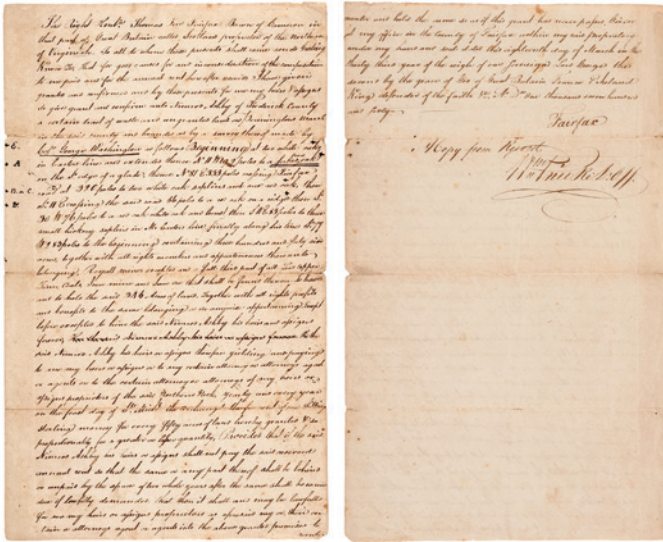 The Right Honble Thomas Lord Fairfax Baron of Cameron in
that part of Great Britain called Scotland proprietor of the Northern
of Virginia. To all to whom these presents shall come sends Greeting
Know Ye that for good causes for and in consideration of the composition
to me paid and for the annual rent hereafter reserved I have given
granted and confirmed and by these presents for me my heirs & assigns
do give grant and confirm unto Nimrod Ashby of Frederick County
a certain tract of waste and ungranted land on
in the said county and bounded as by a survey thereof made by
George Washington as follows Beginning at two white oaks
in line and extended thence N poles to a
on the So. edge of a glade, thence N 81 E 333 poles crossing
road at 396 poles to two white oak saplins and one red oak, thence
So. W crossing the said road 86 poles to a red oak on a ridge, thence So.
30 W 76 poles to a red oak white oak and thence poles to three
small hickory saplins in line, finally along his line
W 283 poles to the beginning containing three hundred and forty six
acres, together with all rights members and appurtenances thereunto
belonging, Royal mines excepted and a full third part of all Lead Copper
Tinn Coals, Iron mines and Iron ore that shall be found thereon to have
and to hold the said 346 Acres of land, Together with all rights profits
and benefits to the same belonging or in anywise appertaining Except
before excepted to him the said Nimrod Ashby his heirs and assigns
forever, said Nimrod Ashby his heirs or assigns to the
said Nimrod Ashby his heirs or assigns therefor yielding and paying
to me my heirs or assigns or to my certain attorney or attorneys agent
or agents or to the certain attorney or attorneys of my heirs or
assigns proprietors of the said Northern Neck, yearly and every year
on the first day of St. Mich: the archangel therefor rent of one shilling
sterling money for every fifty acres of land hereby granted & so
proportionably for a greater or lesser quantity, Provided that if the said
Nimrod Ashby his heirs or assigns shall not pay the said reserved
annual rent so that the same or any part thereof shall be behind
or unpaid by the space of two whole years after the same shall become
due if lawfully demanded that then it shall and may be lawful
for me my heirs or assigns proprietors as aforesaid my or their
certain attorney or attorneys agent or agents into the above granted premises to
reenter and hold the same so as if this grant had never passed, Given
at my office in the County of Fairfax within my said proprietary
under my hand and seal dated this eighteenth day of March in the
thirty third year of the reign of our Sovereign Lord George the
second by the grace of God of Great Britain France & Ireland
King, defender of the faith &c. A. D. one thousand seven hundred
and sixty.
Fairfax
A Copy from Record